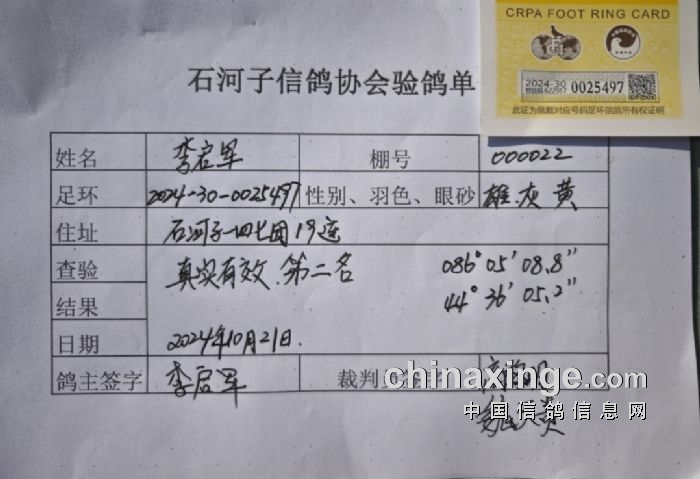 CRPA FOOT RING CARD
2024-30
0025497
此证为佩戴对应号码足环信鸽所有权证明
石河子信鸽协会验鸽单
姓名 李启军 棚号 000022
足环 2024-30-0025497 性别、羽色、眼砂 雄.灰 黄
住址 石河子一四七团19连
查验 真实有效.第二名 086°05′08.8″
结果 44°36′05.2″
日期 2024年10月21日.
鸽主签字 李启军 裁判
chinaxinge.com
中国信鸽信息网